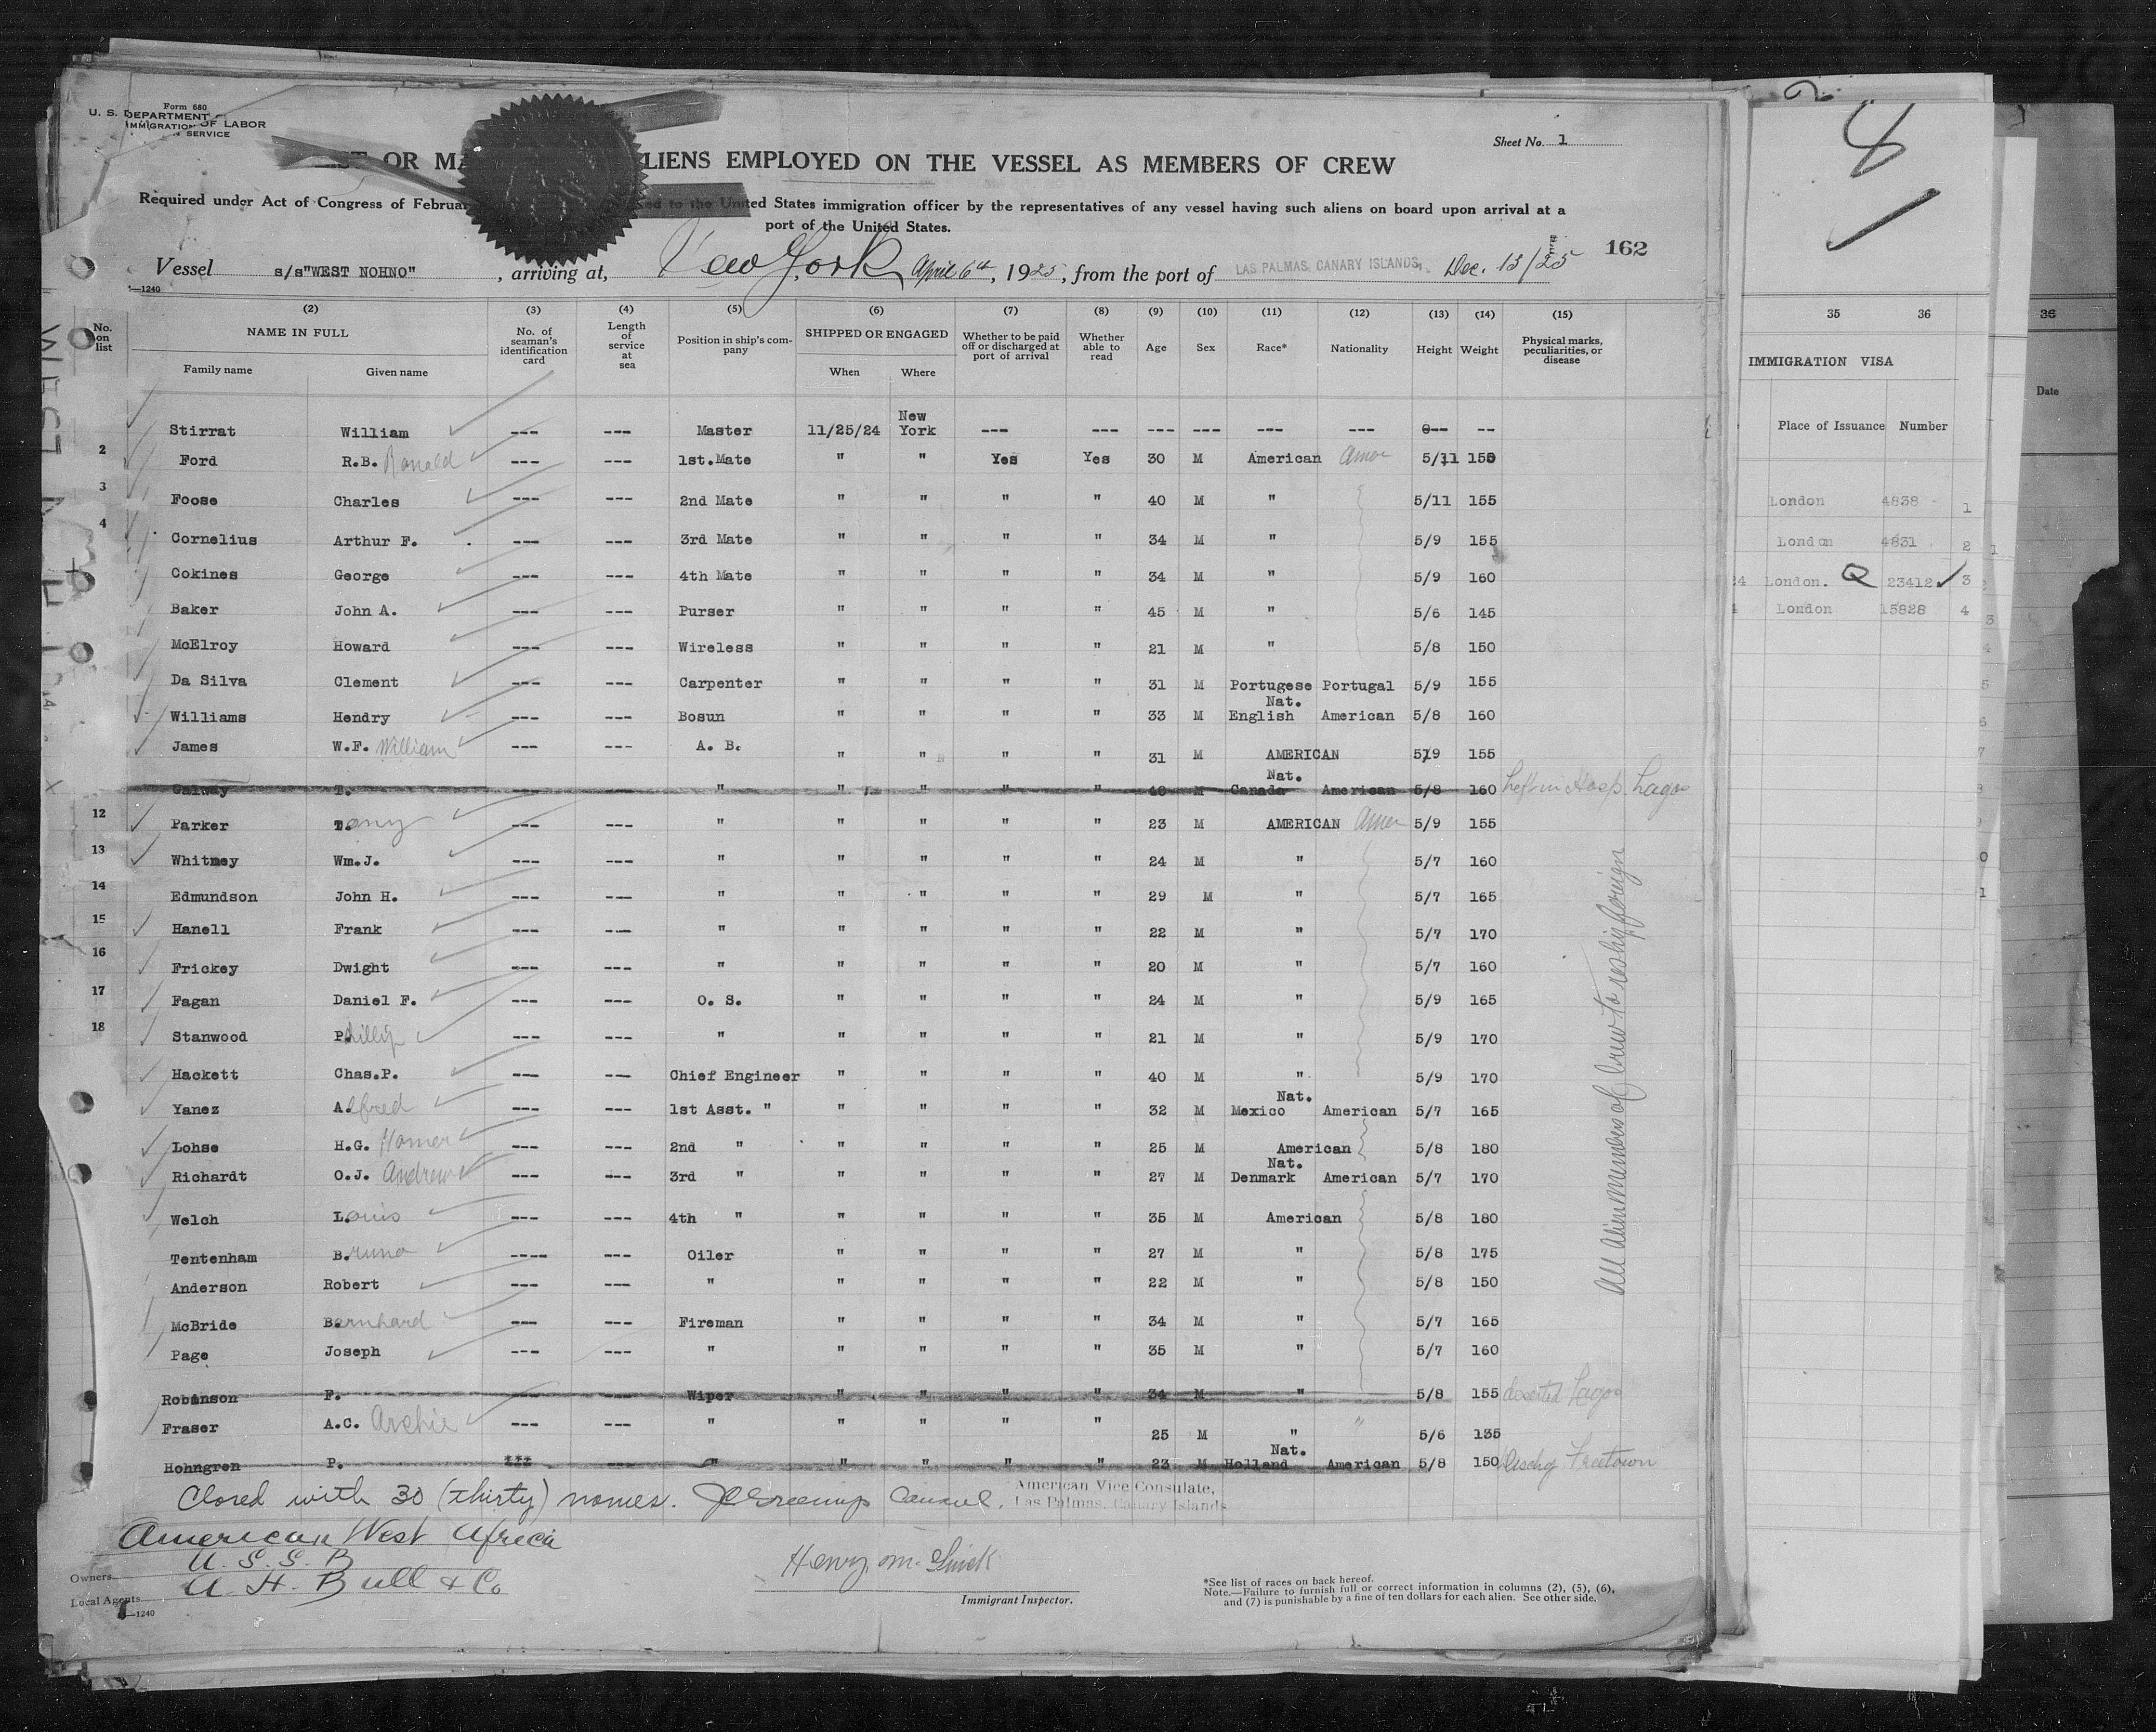 Form 680
U. S. DEPARTMENT OF LABOR
IMMIGRATION SERVICE
Sheet No. 1
LIST OR MA LIENS EMPLOYED ON THE VESSEL AS MEMBERS OF CREW
Required under Act of Congress of Februar sed to the United States immigration officer by the representatives of any vessel having such aliens on board upon arrival at a
port of the United States.
162
Vessel s/s"WEST NOHNO", arriving at, New York, April 6th, 1925, from the port of LAS PALMAS, CANARY ISLANDS, Dec. 13/25
—1240
(2) (3) (4) (5) (6) (7) (8) (9) (10) (11) (12) (13) (14) (15)
No. on list NAME IN FULL No. of seaman's identification card Length of service at sea Position in ship's company SHIPPED OR ENGAGED Whether to be paid off or discharged at port of arrival Whether able to read Age Sex Race* Nationality Height Weight Physical marks, peculiarities, or disease
Family name Given name When Where
Stirrat William --- --- Master 11/25/24 New York --- --- --- --- --- --- --- --
2 Ford R.B. Ronald --- --- 1st.Mate " " Yes Yes 30 M American Amer 5/11 150
3 Foose Charles --- --- 2nd Mate " " " " 40 M " 5/11 155
4 Cornelius Arthur F. --- --- 3rd Mate " " " " 34 M " 5/9 155
Cokines George --- --- 4th Mate " " " " 34 M " 5/9 160
Baker John A. --- --- Purser " " " " 45 M " 5/6 145
McElroy Howard --- --- Wireless " " " " 21 M " 5/8 150
Da Silva Clement --- --- Carpenter " " " " 31 M Portugese Portugal 5/9 155
Williams Hendry --- --- Bosun " " " " 33 M Nat. English American 5/8 160
James W.F. William --- --- A. B. " " " " 31 M AMERICAN 5/9 155
Galway T. " " " " " 40 M Nat. Canada American 5/8 160 Left in Hosp. Lagos
12 Parker Tony --- --- " " " " " 23 M AMERICAN Amer 5/9 155
13 Whitney Wm.J. --- --- " " " " " 24 M " 5/7 160
14 Edmundson John H. --- --- " " " " " 29 M " 5/7 165
15 Hanell Frank --- --- " " " " " 22 M " 5/7 170
16 Frickey Dwight --- --- " " " " " 20 M " 5/7 160
17 Fagan Daniel F. --- --- O. S. " " " " 24 M " 5/9 165
18 Stanwood Phillip --- --- " " " " " 21 M " 5/9 170
Hackett Chas.P. --- --- Chief Engineer " " " " 40 M " 5/9 170
Yanez Alfred --- --- 1st Asst. " " " " " 32 M Nat. Mexico American 5/7 165
Lohse H.G. Homer --- --- 2nd " " " " " 25 M American 5/8 180
Richardt O.J. Andrew --- --- 3rd " " " " " 27 M Nat. Denmark American 5/7 170
Welch Louis --- --- 4th " " " " " 35 M American 5/8 180
Tentenham Bruno ---- --- Oiler " " " " 27 M " 5/8 175
Anderson Robert --- --- " " " " " 22 M " 5/8 150
McBride Bernhard --- --- Fireman " " " " 34 M " 5/7 165
Page Joseph --- --- " " " " " 35 M " 5/7 160
Robinson F. Wiper " " " " 34 M " 5/8 155 deserted Lagos
Fraser A.C. Archie --- --- " " " " " 25 M " " 5/6 135
Hohngren P. *** " " " " " 23 M Nat. Holland American 5/8 150 Dischg Freetown
All alien members of Crew to reship foreign
Closed with 30 (thirty) names. Consul.
American Vice Consulate,
Las Palmas, Canary Islands
American West Africa
Owners U. S. S. B
Local Agents A. H. Bull & Co
—1240
Immigrant Inspector.
*See list of races on back hereof.
Note.—Failure to furnish full or correct information in columns (2), (5), (6),
and (7) is punishable by a fine of ten dollars for each alien. See other side.
35 36
IMMIGRATION VISA
Place of Issuance Number
London 4838 1
London 4831 2
24 London. Q 23412 3
London 15828 4
36
Date